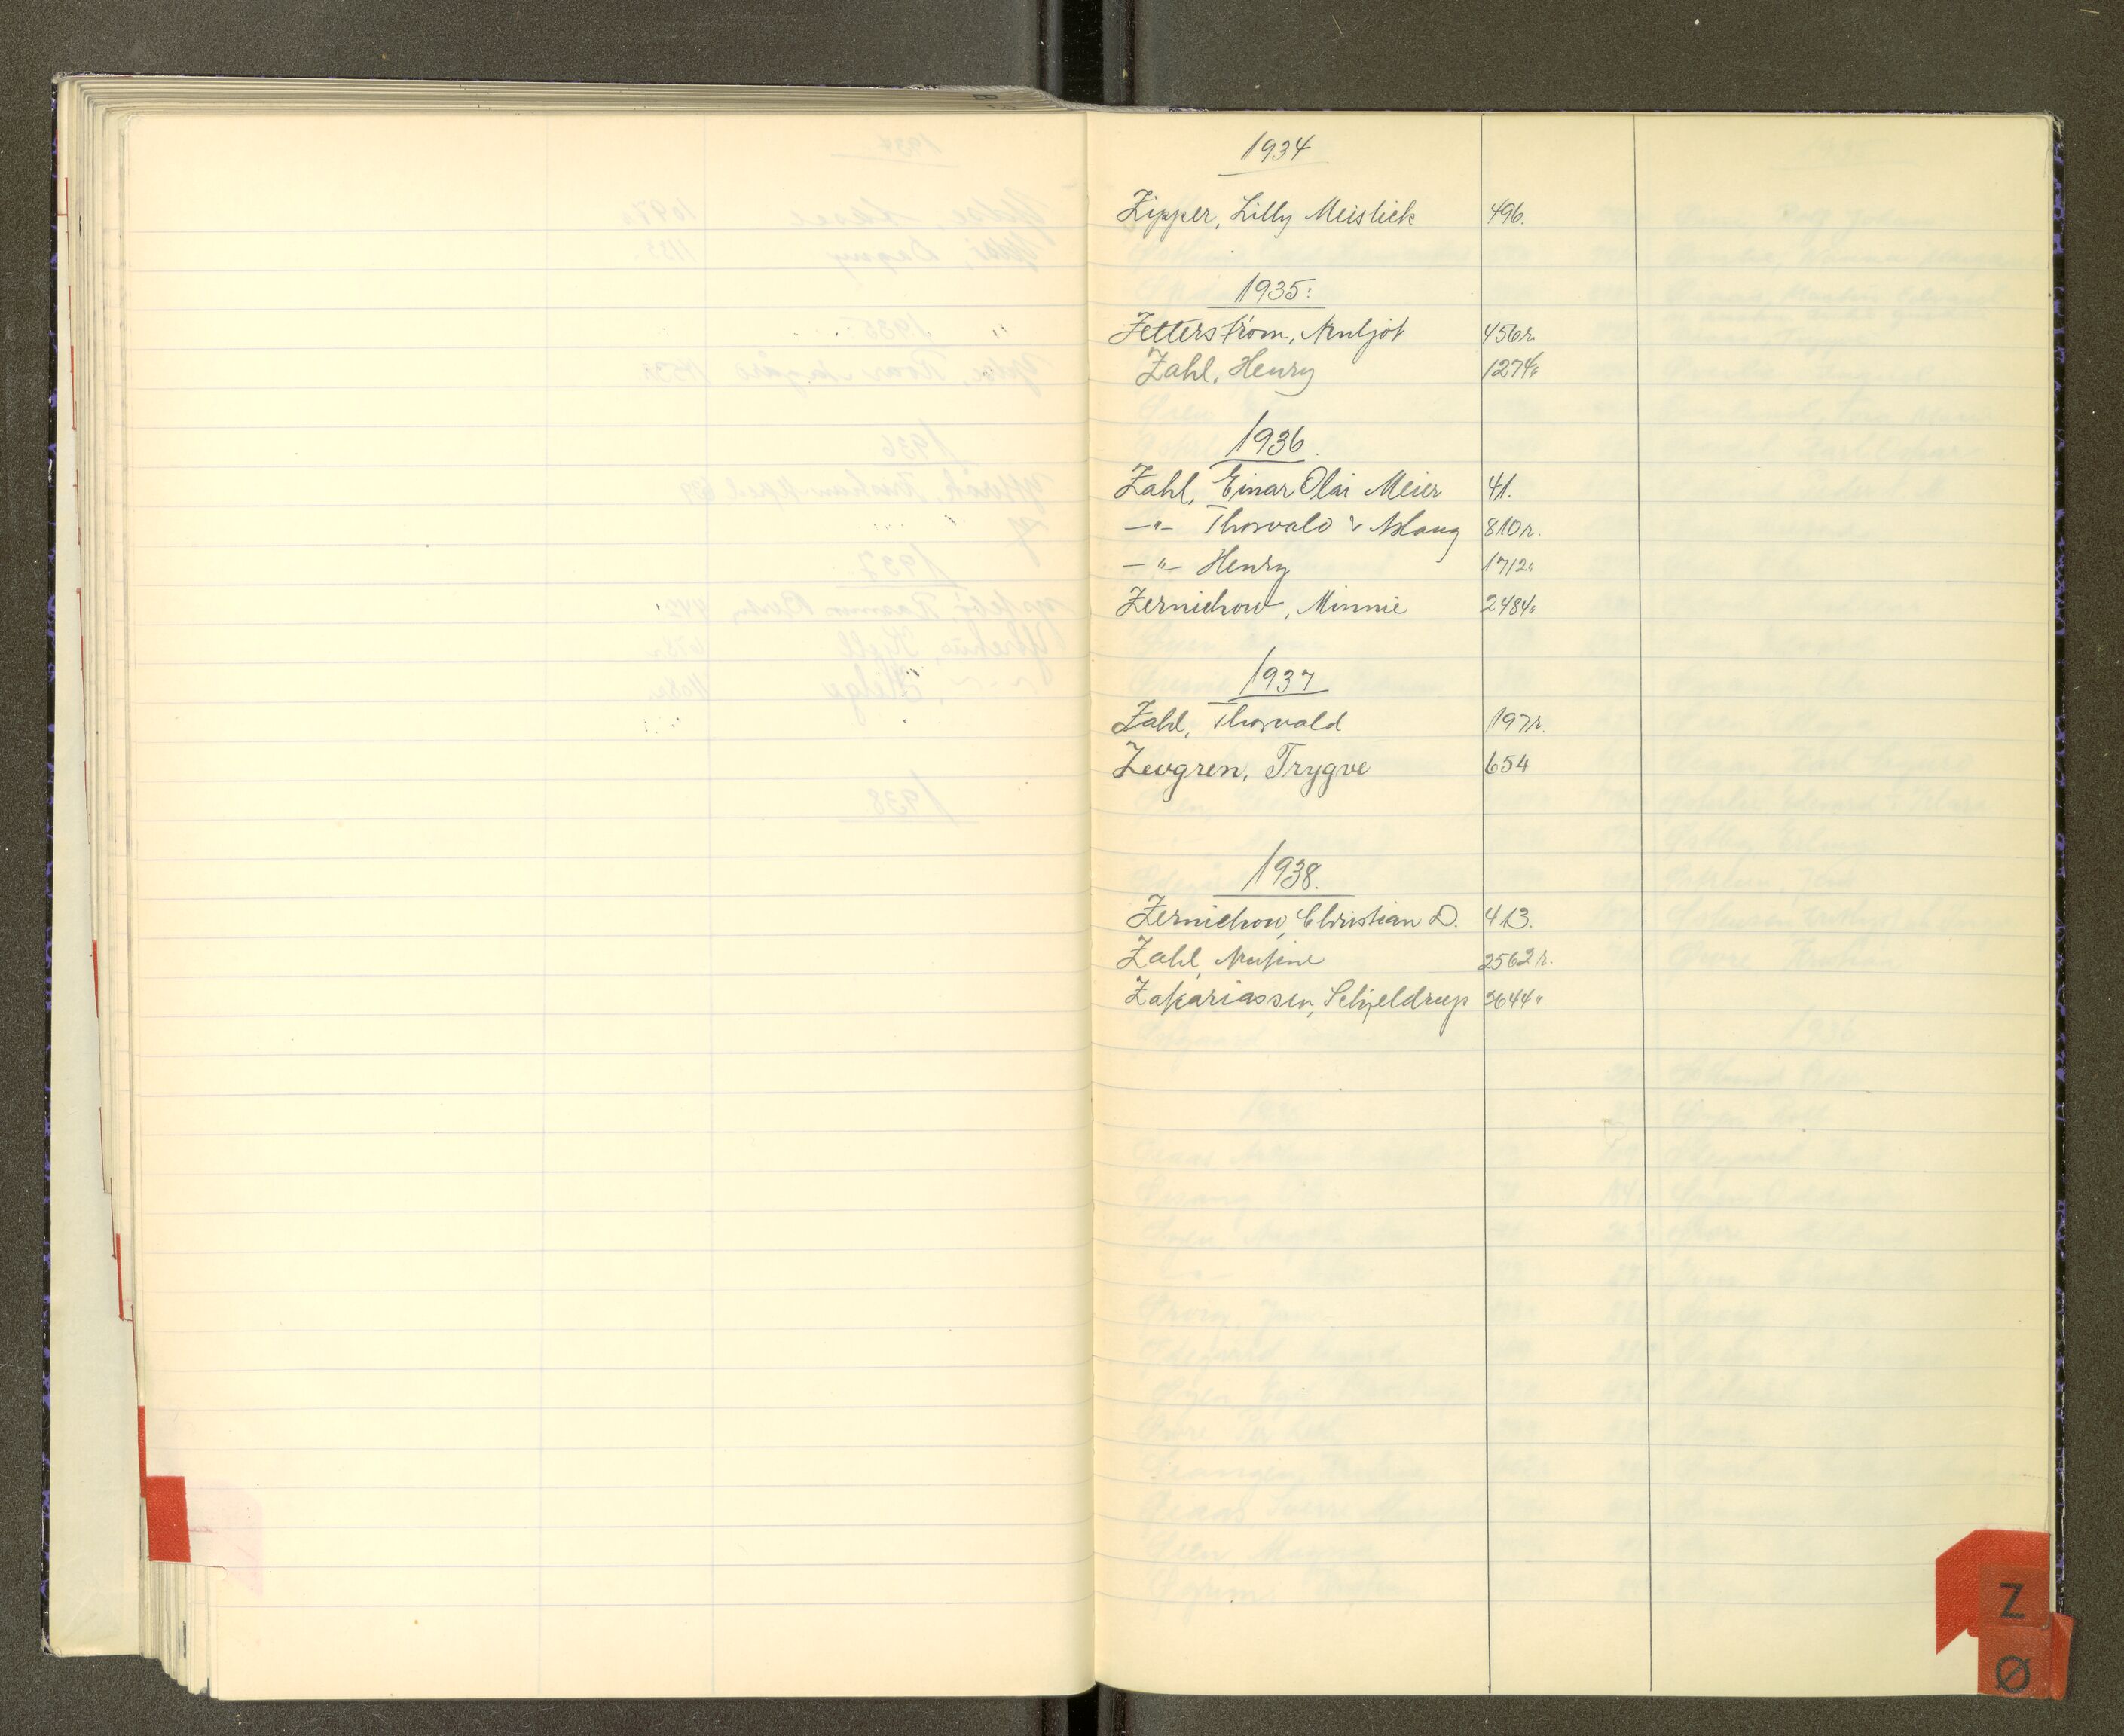 1934
Zipper, Lilly Meislich 496.
1935:
Zetterstrøm, Arnljot 456r.
Zahl, Henry 1274"
1936.
Zahl, Einar Olai Meier 41.
—"— Thorvald & Aslaug 810r.
—"— Henry 1712"
Zernichow, Minnie 2484"
1937
Zahl, Thorvald 197r.
Zevgren, Trygve 654
1938.
Zernichow, Christian D. 413.
Zahl, 2562r.
Zakariassen, Schjeldrup 2644"
Z
Ø